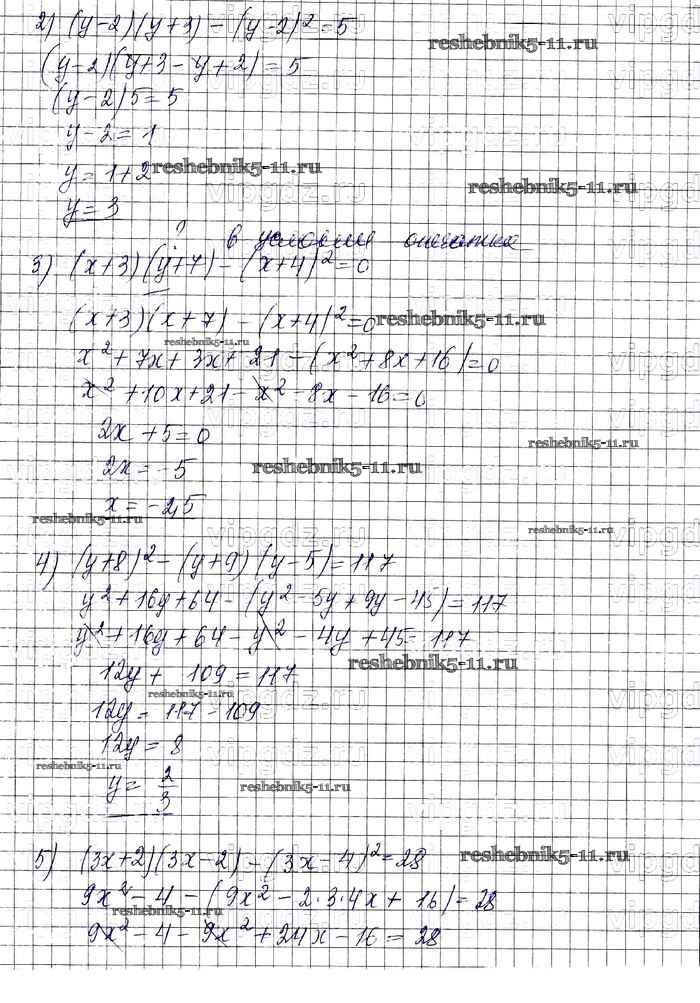 2) (y-2)(y+3) - (y-2)² = 5
reshebnik5-11.ru
(y-2)(y+3-y+2) = 5
(y-2)5 = 5
y-2 = 1
y = 1+2
reshebnik5-11.ru
reshebnik5-11.ru
y = 3
? в условии опечатка
3) (x+3)(y+7) - (x+4)² = 0
(x+3)(x+7) - (x+4)² = 0
reshebnik5-11.ru
reshebnik5-11.ru
x² + 7x + 3x + 21 - (x² + 8x + 16) = 0
x² + 10x + 21 - x² - 8x - 16 = 0
2x + 5 = 0
reshebnik5-11.ru
2x = -5
reshebnik5-11.ru
x = -2,5
reshebnik5-11.ru
vipgdz.ru
reshebnik5-11.ru
4) (y+8)² - (y+9)(y-5) = 117
y² + 16y + 64 - (y² - 5y + 9y - 45) = 117
y² + 16y + 64 - y² - 4y + 45 = 117
reshebnik5-11.ru
12y + 109 = 117
reshebnik5-11.ru
12y = 117 - 109
12y = 8
reshebnik5-11.ru
y = 2/3
reshebnik5-11.ru
5) (3x+2)(3x-2) - (3x-4)² = 28
reshebnik5-11.ru
9x² - 4 - (9x² - 2·3·4x + 16) = 28
reshebnik5-11.ru
9x² - 4 - 9x² + 24x - 16 = 28